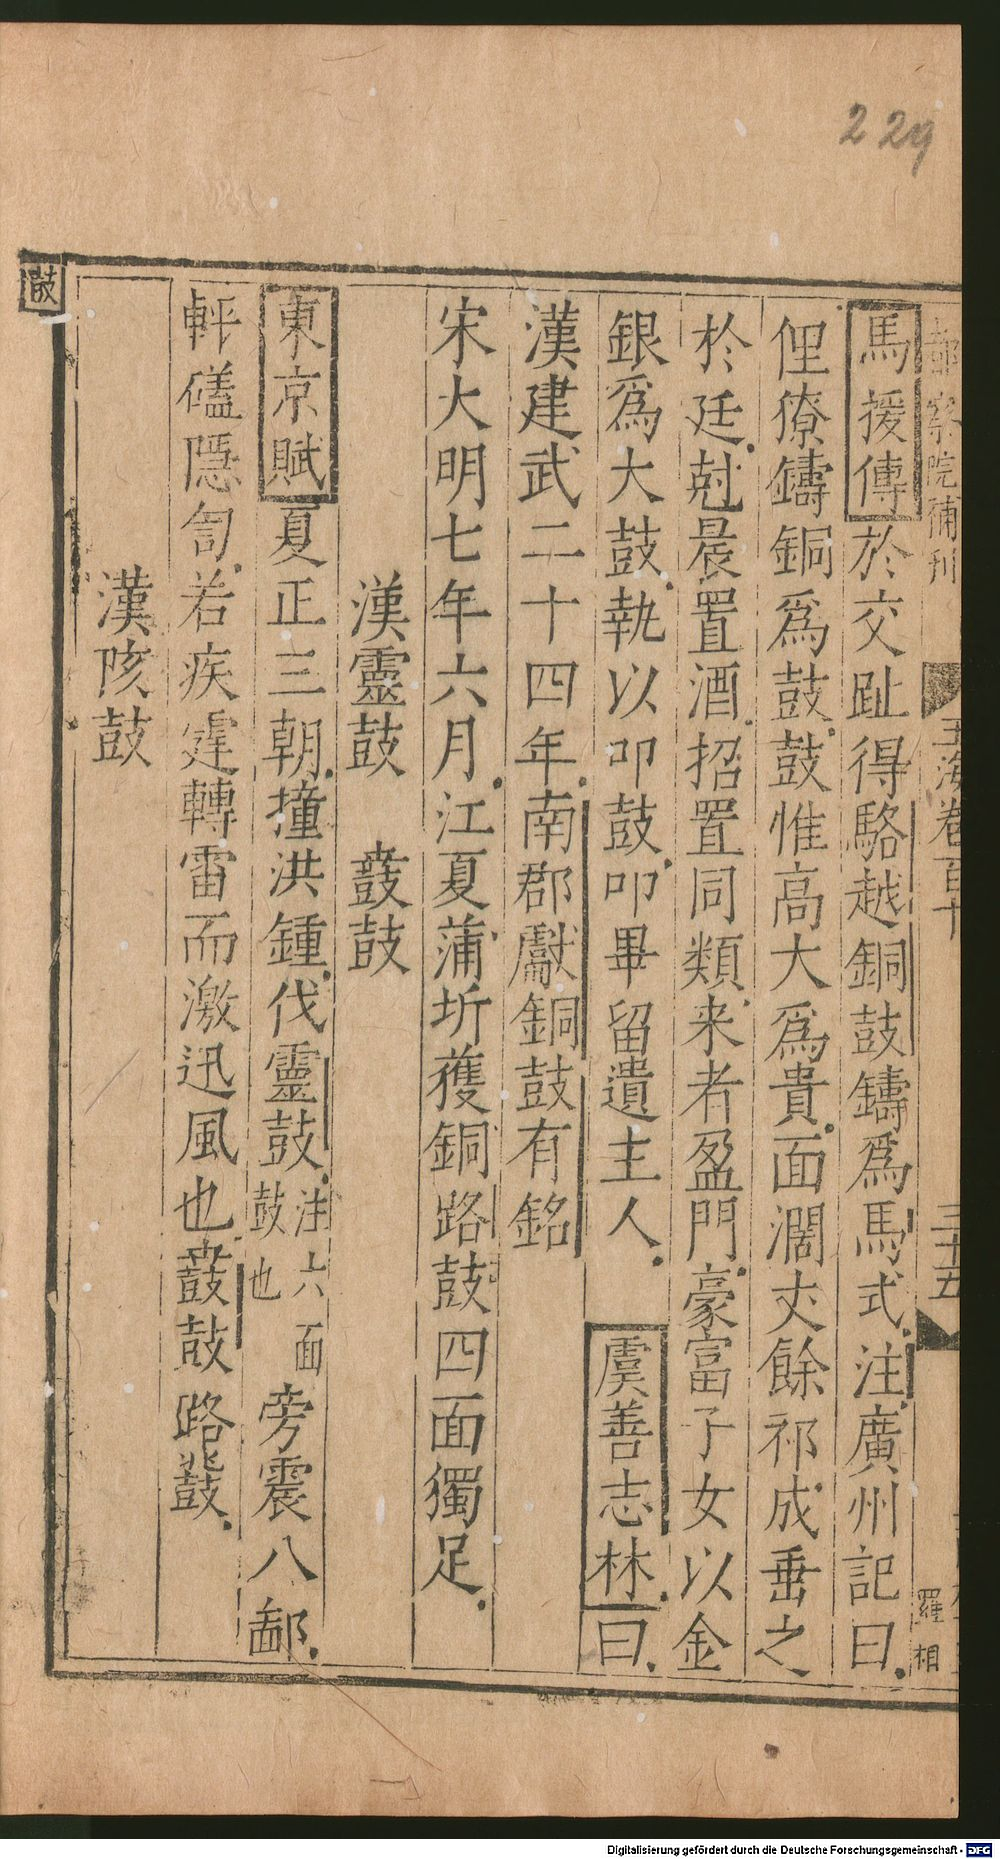 229
都察院補刊 玉海卷百十 三十五 羅相
馬援傳於交趾得駱越銅鼓鑄爲馬式注廣州記曰
俚獠鑄銅爲鼓鼓惟高大爲貴面濶丈餘祁成埀之
於廷尅晨置酒招置同類来者盈門豪富子女以金
銀爲大鼓執以叩鼓叩畢留遺主人 虞善志林曰
漢建武二十四年南郡獻銅鼓有銘
宋大明七年六月江夏蒲圻獲銅路鼓四面獨足
漢靈鼓 鼖鼓
東京賦夏正三朝撞洪鍾伐靈鼓注六面鼓也旁震八鄙
軯磕隱訇若疾霆轉雷而激迅風也鼖鼓路鼗
漢陔鼓
鼓
Digitalisierung gefördert durch die Deutsche Forschungsgemeinschaft - DFG